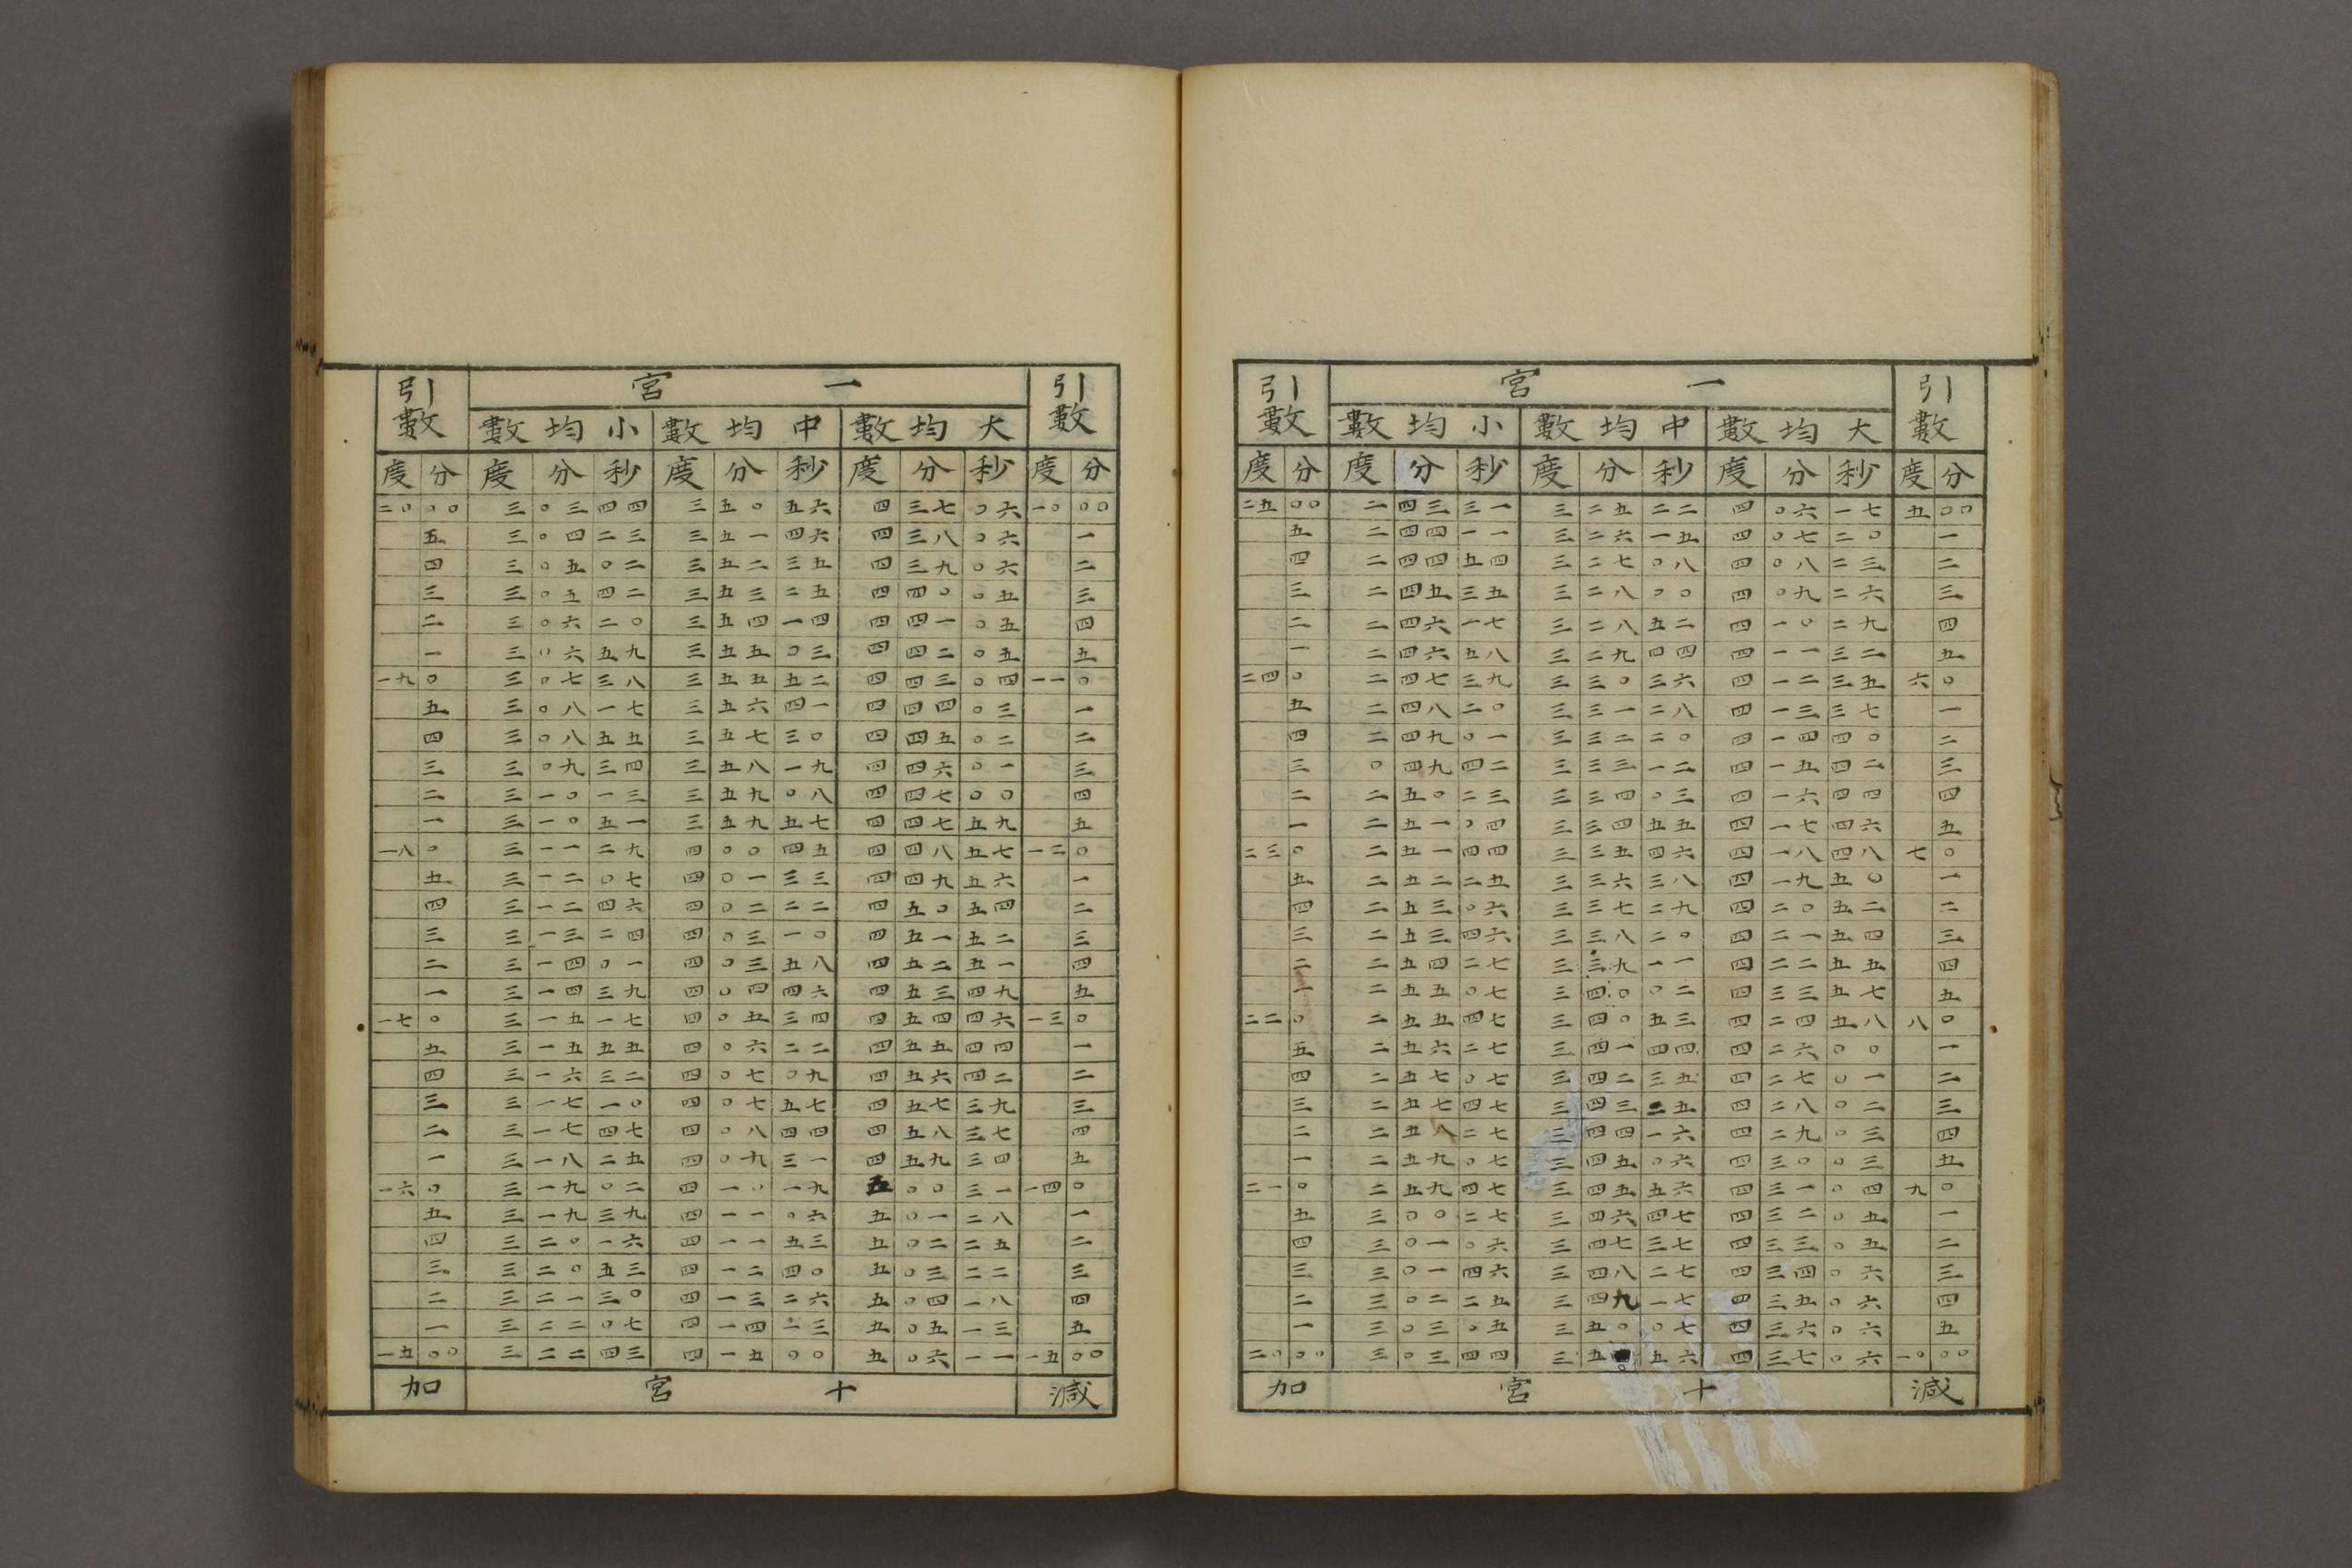 引數 一宮 引數
大均數 中均數 小均數
度 分 度 分 秒 度 分 秒 度 分 秒 度 分
二五 〇〇 二 四三 三一 三 二五 二二 四 〇六 一七 五 〇〇
五 二 四四 一一 三 二六 一五 四 〇七 二〇 一
四 二 四四 五四 三 二七 〇八 四 〇八 二三 二
三 二 四五 三五 三 二八 〇〇 四 〇九 二六 三
二 二 四六 一七 三 二八 五二 四 一〇 二九 四
一 二 四六 五八 三 二九 四四 四 一一 三二 五
二四 〇 二 四七 三九 三 三〇 三六 四 一二 三五 六 〇
五 二 四八 二〇 三 三一 二八 四 一三 三七 一
四 二 四九 〇一 三 三二 二〇 四 一四 四〇 二
三 〇 四九 四二 三 三三 一二 四 一五 四二 三
二 二 五〇 二三 三 三四 〇三 四 一六 四四 四
一 二 五一 〇四 三 三四 五五 四 一七 四六 五
二三 〇 二 五一 四四 三 三五 四六 四 一八 四八 七 〇
五 二 五二 二五 三 三六 三八 四 一九 五〇 一
四 二 五三 〇六 三 三七 二九 四 二〇 五二 二
三 二 五三 四六 三 三八 二〇 四 二一 五四 三
二 二 五四 二七 三 三九 一一 四 二二 五五 四
一 二 五五 〇七 三 四〇 〇二 四 三三 五七 五
二二 〇 二 五五 四七 三 四〇 五三 四 二四 五八 八 〇
五 二 五六 二七 三 四一 四四 四 二六 〇〇 一
四 二 五七 〇七 三 四二 三五 四 二七 〇一 二
三 二 五七 四七 三 四三 二五 四 二八 〇二 三
二 二 五八 二七 三 四四 一六 四 二九 〇三 四
一 二 五九 〇七 三 四五 〇六 四 三〇 〇三 五
二一 〇 二 五九 四七 三 四五 五六 四 三一 〇四 九 〇
五 三 〇〇 二七 三 四六 四七 四 三二 〇五 一
四 三 〇一 〇六 三 四七 三七 四 三三 〇五 二
三 三 〇一 四六 三 四八 二七 四 三四 〇六 三
二 三 〇二 二五 三 四九 一七 四 三五 〇六 四
一 三 〇三 〇五 三 五〇 〇七 四 三六 〇六 五
二〇 〇〇 三 〇三 四四 三 五〇 五六 四 三七 〇六 一〇 〇〇
加 十宮 減
引數 一宮 引數
大均數 中均數 小均數
度 分 度 分 秒 度 分 秒 度 分 秒 度 分
二〇 〇〇 三 〇三 四四 三 五〇 五六 四 三七 〇六 一〇 〇〇
五 三 〇四 二三 三 五一 四六 四 三八 〇六 一
四 三 〇五 〇二 三 五二 三五 四 三九 〇六 二
三 三 〇五 四二 三 五三 二五 四 四〇 〇五 三
二 三 〇六 二〇 三 五四 一四 四 四一 〇五 四
一 三 〇六 五九 三 五五 〇三 四 四二 〇五 五
一九 〇 三 〇七 三八 三 五五 五二 四 四三 〇四 一一 〇
五 三 〇八 一七 三 五六 四一 四 四四 〇三 一
四 三 〇八 五五 三 五七 三〇 四 四五 〇二 二
三 三 〇九 三四 三 五八 一九 四 四六 〇一 三
二 三 一〇 一三 三 五九 〇八 四 四七 〇〇 四
一 三 一〇 五一 三 五九 五七 四 四七 五九 五
一八 〇 三 一一 二九 四 〇〇 四五 四 四八 五七 一二 〇
五 三 一二 〇七 四 〇一 三三 四 四九 五六 一
四 三 一二 四六 四 〇二 二二 四 五〇 五四 二
三 三 一三 二四 四 〇三 一〇 四 五一 五二 三
二 三 一四 〇一 四 〇三 五八 四 五二 五一 四
一 三 一四 三九 四 〇四 四六 四 五三 四九 五
一七 〇 三 一五 一七 四 〇五 三四 四 五四 四六 一三 〇
五 三 一五 五五 四 〇六 二二 四 五五 四四 一
四 三 一六 三二 四 〇七 〇九 四 五六 四二 二
三 三 一七 一〇 四 〇七 五七 四 五七 三九 三
二 三 一七 四七 四 〇八 四四 四 五八 三七 四
一 三 一八 二五 四 〇九 三一 四 五九 三四 五
一六 〇 三 一九 〇二 四 一〇 一九 五 〇〇 三一 一四 〇
五 三 一九 三九 四 一一 〇六 五 〇一 二八 一
四 三 二〇 一六 四 一一 五三 五 〇二 二五 二
三 三 二〇 五三 四 一二 四〇 五 〇三 二二 三
二 三 二一 三〇 四 一三 二六 五 〇四 一八 四
一 三 二二 〇七 四 一四 一三 五 〇五 一三 五
一五 〇〇 三 二二 四三 四 一五 〇〇 五 〇六 一一 一五 〇〇
加 十宮 減